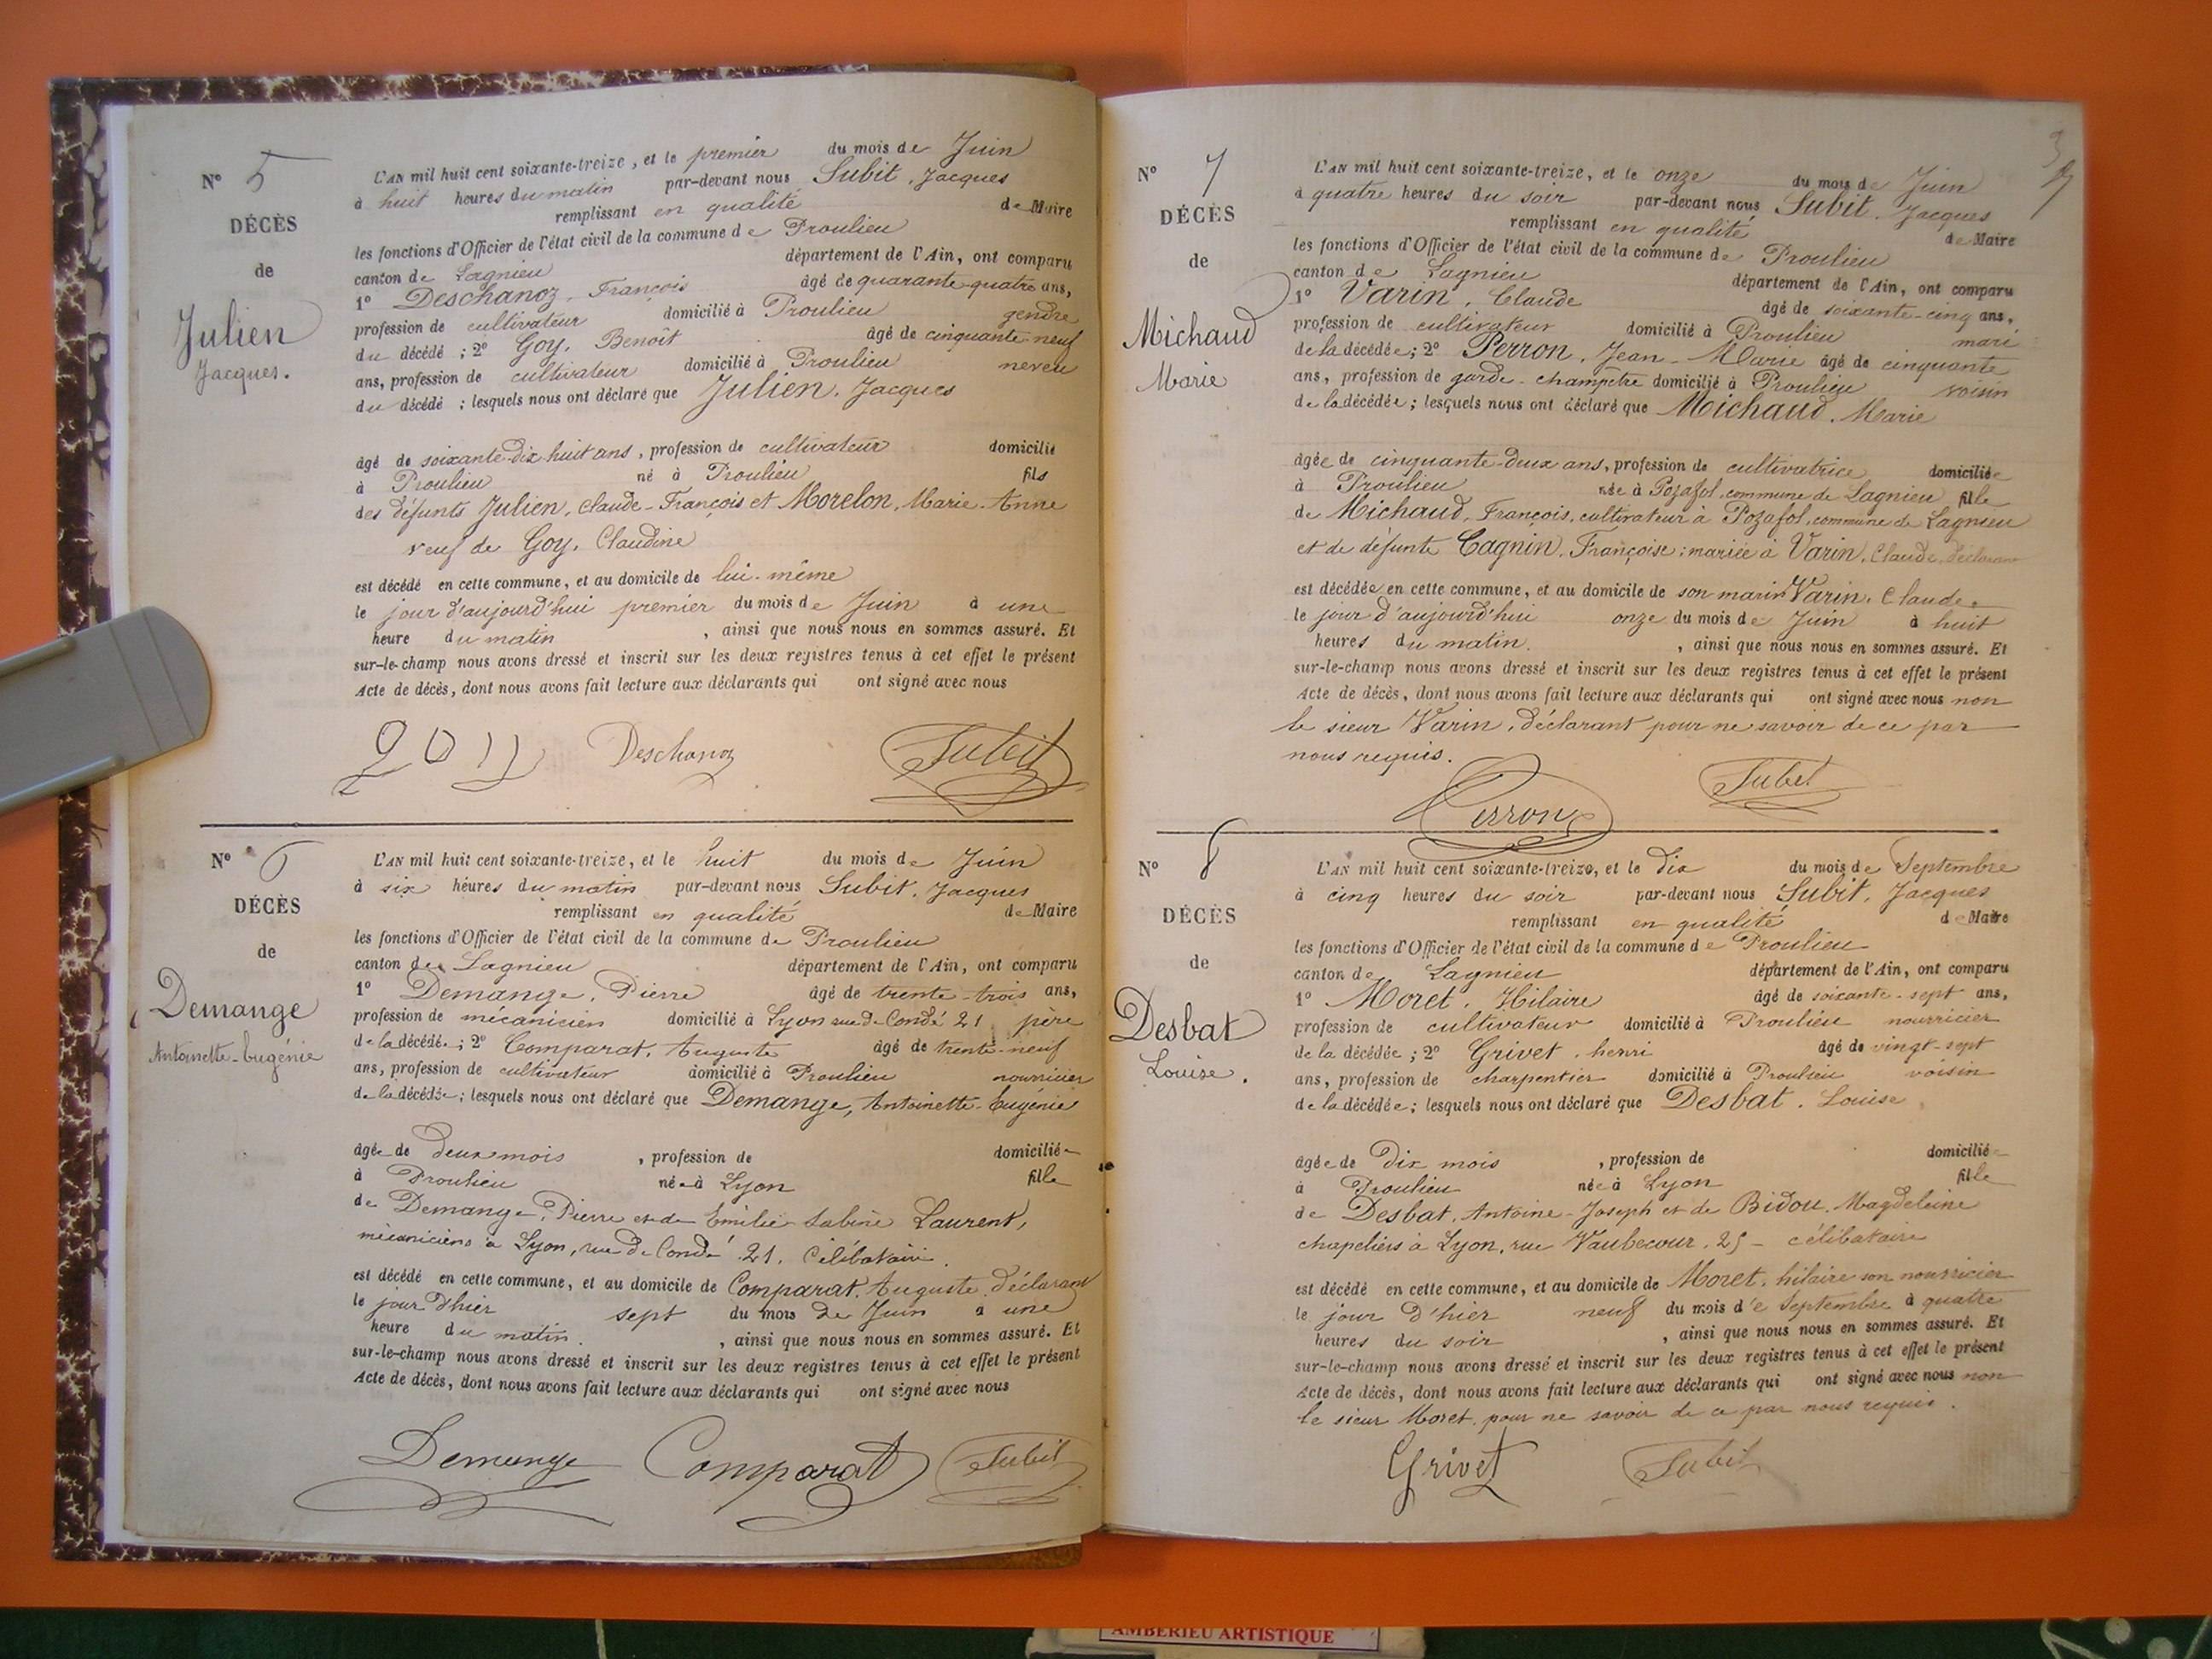 N° 5
DÉCÈS
de
Julien
Jacques.
L'AN mil huit cent soixante-treize, et le premier du mois de Juin
à huit heures du matin par-devant nous Subit, Jacques
remplissant en qualité de Maire
les fonctions d'Officier de l'état civil de la commune de Proulieu
canton de Lagnieu département de l'Ain, ont comparu
1° Deschanoz, François âgé de quarante-quatre ans,
profession de cultivateur domicilié à Proulieu gendre
du décédé ; 2° Goy, Benoît âgé de cinquante-neuf
ans, profession de cultivateur domicilié à Proulieu neveu
du décédé ; lesquels nous ont déclaré que Julien, Jacques
âgé de soixante-dix-huit ans, profession de cultivateur domicilié
à Proulieu né à Proulieu fils
des défunts Julien, Claude-François et Morelon, Marie-Anne
veuf de Goy, Claudine
est décédé en cette commune, et au domicile de lui-même
le jour d'aujourd'hui premier du mois de Juin à une
heure du matin, ainsi que nous nous en sommes assuré. Et
sur-le-champ nous avons dressé et inscrit sur les deux registres tenus à cet effet le présent
Acte de décès, dont nous avons fait lecture aux déclarants qui ont signé avec nous
Deschanoz Subit
N° 6
DÉCÈS
de
Demange
Antoinette-Eugénie
L'AN mil huit cent soixante-treize, et le huit du mois de Juin
à six heures du matin par-devant nous Subit, Jacques
remplissant en qualité de Maire
les fonctions d'Officier de l'état civil de la commune de Proulieu
canton de Lagnieu département de l'Ain, ont comparu
1° Demange, Pierre âgé de trente-trois ans,
profession de mécanicien domicilié à Lyon rue de Condé 21 père
de la décédée ; 2° Comparat, Auguste âgé de trente-neuf
ans, profession de cultivateur domicilié à Proulieu nourricier
de la décédée ; lesquels nous ont déclaré que Demange, Antoinette-Eugénie
âgée de deux mois, profession de domiciliée
à Proulieu née à Lyon fille
de Demange, Pierre et de Emilie Sabine Laurent,
mécaniciens à Lyon, rue de Condé 21. Célibataire.
est décédé en cette commune, et au domicile de Comparat, Auguste, déclarant
le jour d'hier sept du mois de Juin à une
heure du matin., ainsi que nous nous en sommes assuré. Et
sur-le-champ nous avons dressé et inscrit sur les deux registres tenus à cet effet le présent
Acte de décès, dont nous avons fait lecture aux déclarants qui ont signé avec nous
Demange Comparat Subit
3
N° 7
DÉCÈS
de
Michaud
Marie
L'AN mil huit cent soixante-treize, et le onze du mois de Juin
à quatre heures du soir par-devant nous Subit, Jacques
remplissant en qualité de Maire
les fonctions d'Officier de l'état civil de la commune de Proulieu
canton de Lagnieu département de l'Ain, ont comparu
1° Varin, Claude âgé de soixante-cinq ans,
profession de cultivateur domicilié à Proulieu mari
de la décédée ; 2° Perron, Jean-Marie âgé de cinquante
ans, profession de garde-champêtre domicilié à Proulieu voisin
de la décédée ; lesquels nous ont déclaré que Michaud, Marie
âgée de cinquante-deux ans, profession de cultivatrice domiciliée
à Proulieu née à Pozafol, commune de Lagnieu fille
de Michaud, François, cultivateur à Pozafol, commune de Lagnieu
et de défunte Cagnin, Françoise ; mariée à Varin, Claude, déclarant
est décédée en cette commune, et au domicile de son mari Varin, Claude.
le jour d'aujourd'hui onze du mois de Juin à huit
heures du matin., ainsi que nous nous en sommes assuré. Et
sur-le-champ nous avons dressé et inscrit sur les deux registres tenus à cet effet le présent
Acte de décès, dont nous avons fait lecture aux déclarants qui ont signé avec nous non
le sieur Varin, déclarant pour ne savoir de ce par
nous requis.
Perron Subit
N° 8
DÉCÈS
de
Desbat
Louise.
L'AN mil huit cent soixante-treize, et le dix du mois de Septembre
à cinq heures du soir par-devant nous Subit, Jacques
remplissant en qualité de Maire
les fonctions d'Officier de l'état civil de la commune de Proulieu
canton de Lagnieu département de l'Ain, ont comparu
1° Moret, Hilaire âgé de soixante-sept ans,
profession de cultivateur domicilié à Proulieu nourricier
de la décédée ; 2° Grivet, henri âgé de vingt-sept
ans, profession de charpentier domicilié à Proulieu voisin
de la décédée ; lesquels nous ont déclaré que Desbat, Louise,
âgée de dix mois, profession de domiciliée
à Proulieu née à Lyon fille
de Desbat, Antoine-Joseph et de Bidou, Magdeleine
chapeliers à Lyon, rue Vaubecour, 25 - célibataire
est décédé en cette commune, et au domicile de Moret, hilaire son nourricier
le jour d'hier neuf du mois de Septembre à quatre
heures du soir, ainsi que nous nous en sommes assuré. Et
sur-le-champ nous avons dressé et inscrit sur les deux registres tenus à cet effet le présent
Acte de décès, dont nous avons fait lecture aux déclarants qui ont signé avec nous non
le sieur Moret, pour ne savoir de ce par nous requis.
Grivet Subit
AMBERIEU ARTISTIQUE